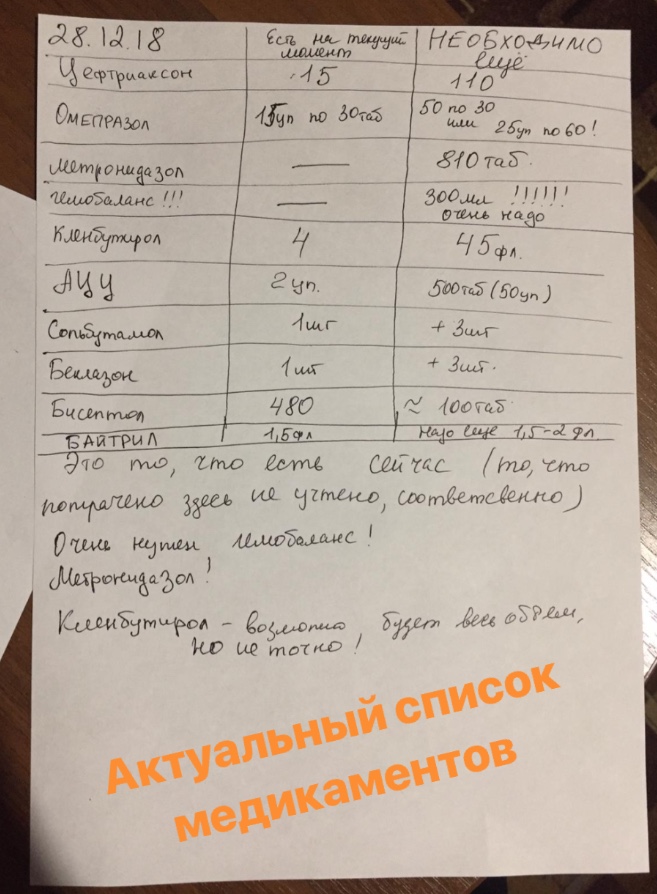 28.12.18 Есть на текущий момент НЕОБХОДИМО ещё
Цефтриаксон 15 110
ОМЕПРАЗОЛ 15уп по 30таб 50 по 30 или 25уп по 60!
Метронидазол — 810 таб.
Гемобаланс!!! — 300мл !!!!!! очень надо
Кленбутирол 4 45 фл.
АЦЦ 2 уп. 500таб (50уп)
Сольбутамол 1шт + 3шт
Беклазон 1шт + 3шт.
Бисептол 480 ≈ 100таб
БАЙТРИЛ 1,5фл надо ещё 1,5-2 фл
Это то, что есть сейчас (то, что
потрачено здесь не учтено, соответсвенно)
Очень нужен гемобаланс!
Метронидазол!
Кленбутирол - возможно, будет весь объем,
но не точно!
Актуальный список
медикаментов